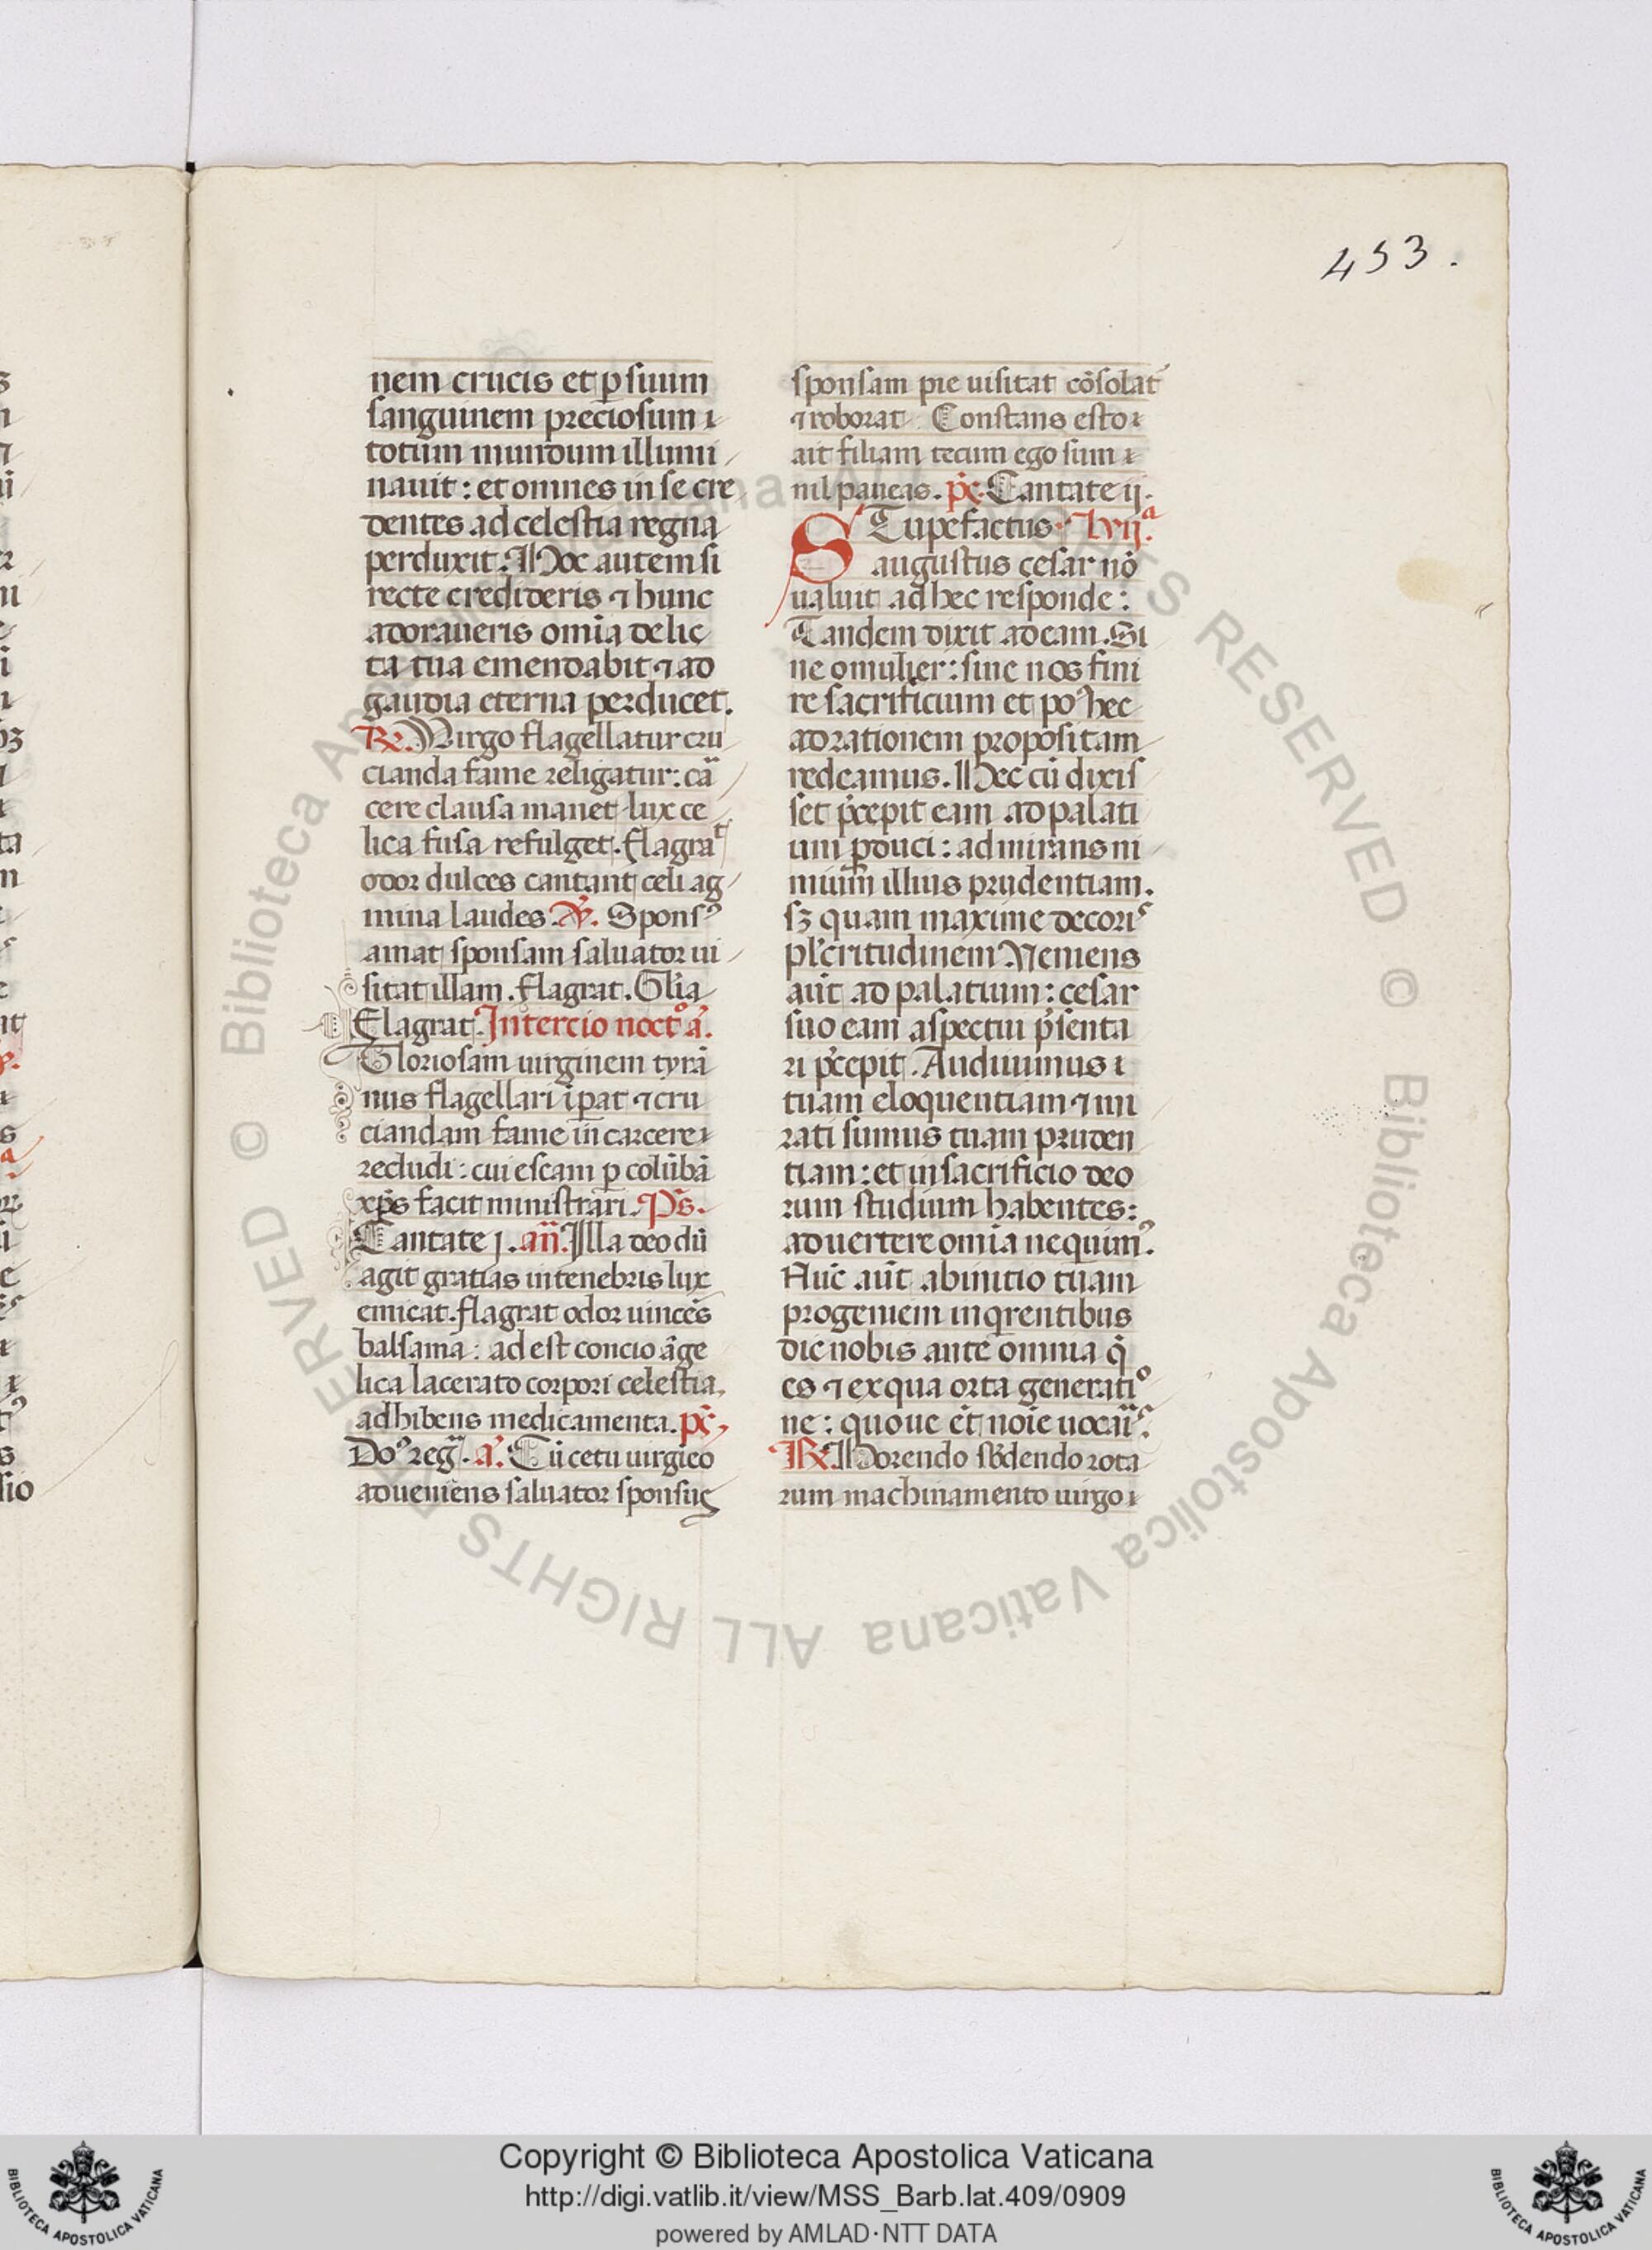 453.
nem crucis et ꝑ suum
sanguinem preciosum ⁊
totum mundum illumi
nauit: et omnes in se cre
dentes ad celestia regna
perduxit. Hoc autem si
recte credideris ⁊ hunc
adoraueris om̅ia delic
ta tua emendabit ⁊ ad
gaudia eterna perducet.
℞. Virgo flagellatur cru
cianda fame religatur: car
cere clausa manet lux ce
lica fusa refulget. Flagrat
odor dulces cantant celi ag
mina laudes. ℣. Spons᾿
amat sponsam saluator ui
sitat illam. Flagrat. Gl̅ia
Flagrat. In tercio noct᾿o a̅.
Gloriosam uirginem tyra̅
nus flagellari i̅perat ⁊ cru
ciandam fame in carcere
recludi: cui escam ꝑ colu̅ba̅
xp̅s facit ministrari. Ps̅.
Cantate j. an̅. Illa deo du̅
agit gratias in tenebris lux
emicat. flagrat odor uince̅s
balsama: adest concio a̅ge
lica lacerato corpori celestia
adhibens medicamenta. ps̅
Do᾿ reg᾿. a̅. Cu̅ cetu uirgi̅eo
adueniens saluator sponsus
sponsam pie uisitat co̅solat᾿
⁊ roborat. Constans esto
ait filiam tecum ego sum ⁊
nil paueas. ps̅. Cantate ij.
STupefactus lc̅ vij.a
augustus cesar no̅
ualuit ad hec responde:
Tandem dixit ad eam. Si
ne o mulier: sine nos fini
re sacrificium et po᾿ hec
ad orationem propositam
redeamus. Hec cu̅ dixis
set p̅cepit eam ad palati
um ꝑduci: admirans ni
mium illius prudentiam.
sꝫ quam maxime decoris
pl̅critudinem. Veniens
au̅t ad palatium: cesar
suo eam aspectui p̅senta
ri p̅cepit. Audiuimus
tuam eloquentiam ⁊ mi
rati sumus tuam pruden
tiam: et in sacrificio deo
rum studium habentes:
aduertere om̅ia nequim᾿.
Nu̅c au̅t ab initio tuam
progeniem inq̅rentibus
dic nobis ante omnia q̅
es ⁊ ex qua orta generatio
ne: quoue et no̅ie uocaris.
℞. Horrendo sb̅dendo rota
rum machinamento uirgo
Copyright © Biblioteca Apostolica Vaticana
http://digi.vatlib.it/view/MSS_Barb.lat.409/0909
powered by AMLAD·NTT DATA
BIBLIOTECA APOSTOLICA VATICANA
BIBLIOTECA APOSTOLICA VATICANA
© Biblioteca Apostolica Vaticana ALL RIGHTS RESERVED © Biblioteca Apostolica Vaticana ALL RIGHTS RESERVED